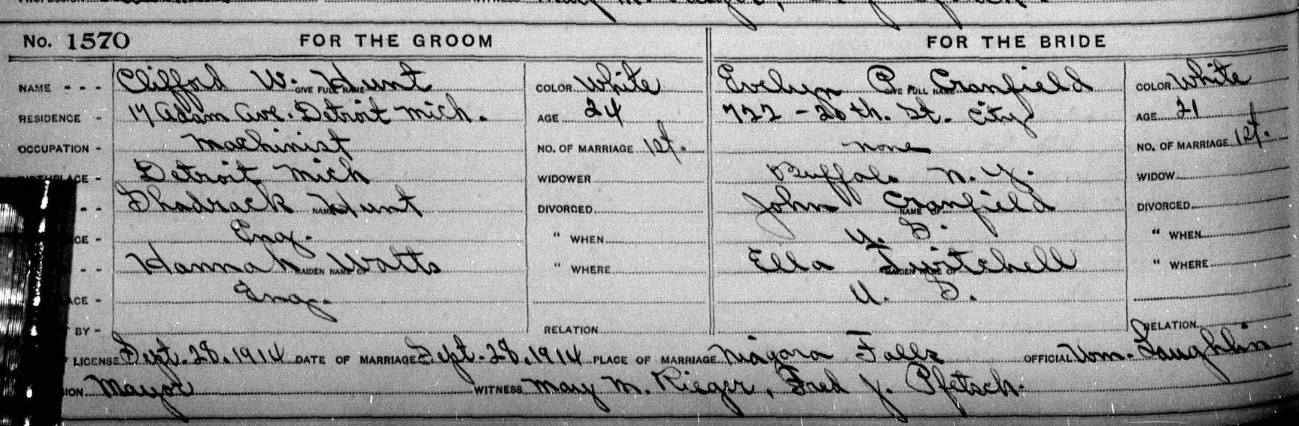 No. 1570 FOR THE GROOM FOR THE BRIDE
NAME - - - Clifford W. Hunt GIVE FULL NAME COLOR White Evelyn C. Cranfield GIVE FULL NAME COLOR White
RESIDENCE - 17 Adam Ave. Detroit Mich. AGE 24 722 - 20th. St. City AGE 21
OCCUPATION - Machinist NO. OF MARRIAGE 1st. none NO. OF MARRIAGE 1st.
BIRTHPLACE - Detroit Mich WIDOWER Buffalo N.Y. WIDOW
- - Shadrack Hunt NAME OF DIVORCED John Cranfield NAME OF DIVORCED
CE - Eng. " WHEN U. S. " WHEN
- - Hannah Watts MAIDEN NAME OF " WHERE Ella Twitchell MAIDEN NAME OF " WHERE
ACE - Eng. U. S.
T BY - RELATION RELATION
F LICENSE Sept. 28. 1914 DATE OF MARRIAGE Sept. 28. 1914 PLACE OF MARRIAGE Niagara Falls OFFICIAL Wm. Laughlin
ION Mayor WITNESS May M. Rieger, Fred J. Pfetsch.